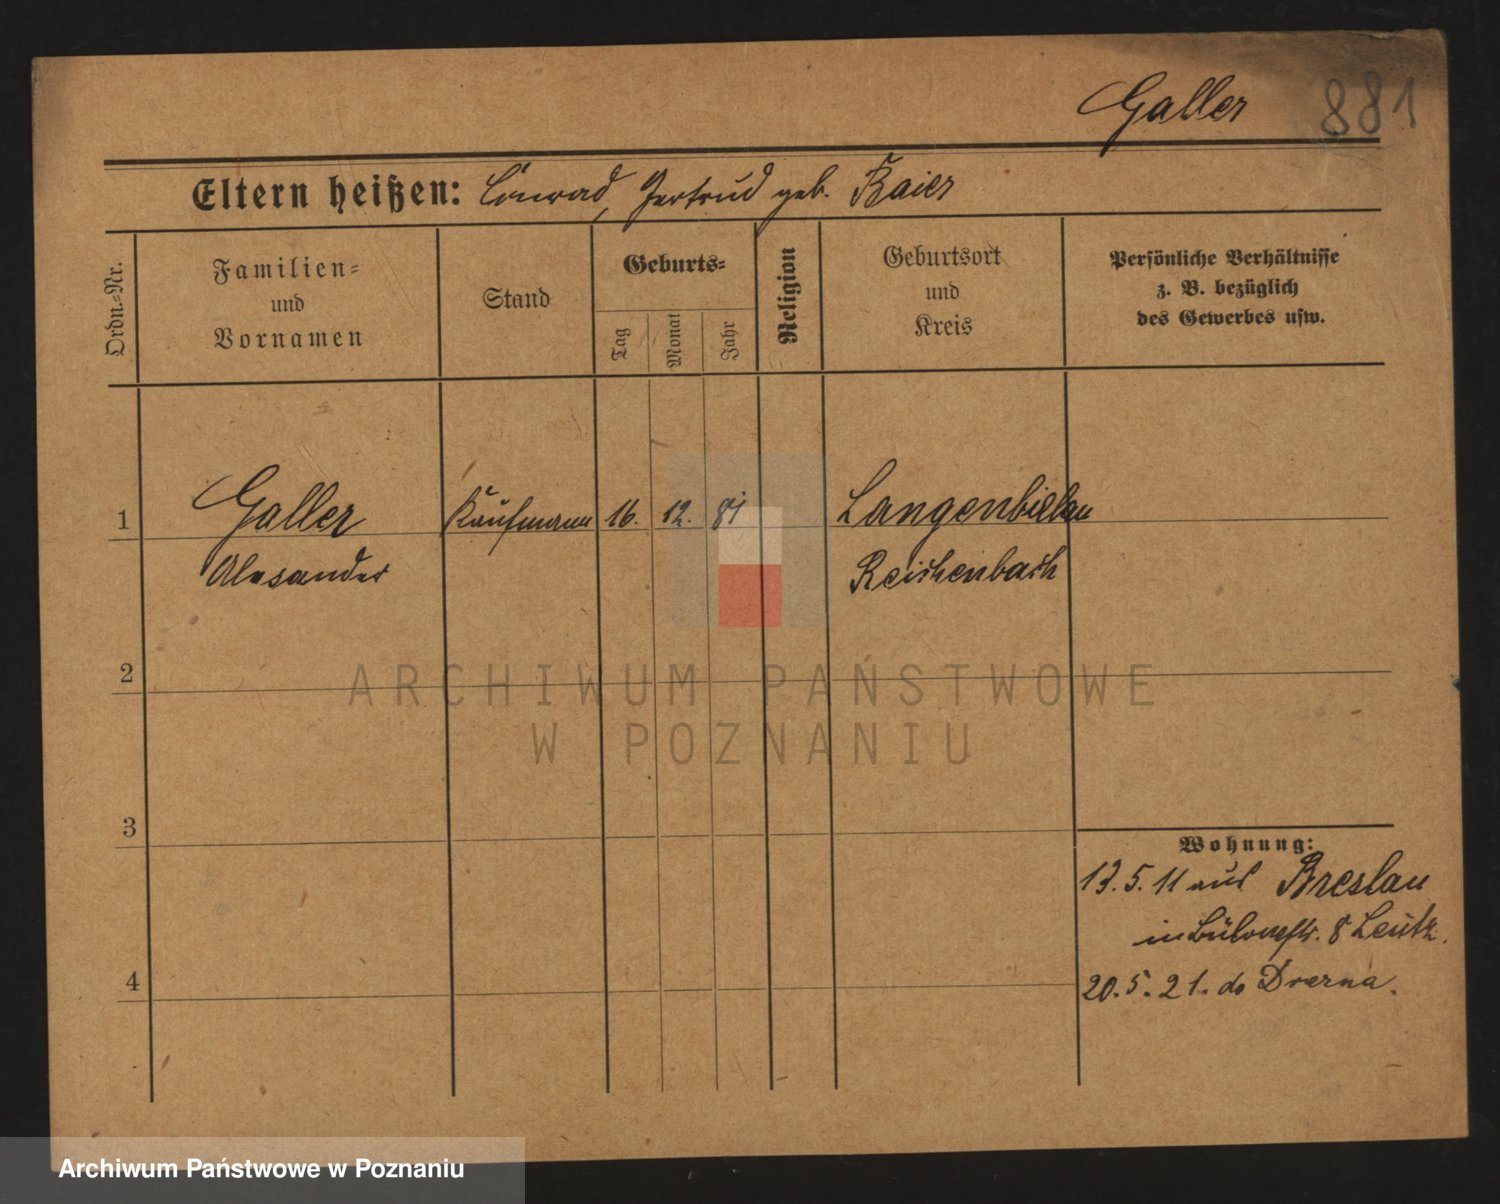 Galler 881
Eltern heißen: Conrad, Gertrud geb. Baier
Ordn.-Nr.
Familien-
und
Vornamen
Stand
Geburts-
Tag
Monat
Jahr
Religion
Geburtsort
und
Kreis
Persönliche Verhältnisse
z. B. bezüglich
des Gewerbes usw.
1 Galler Kaufmann 16. 12. 81 Langenbielau
Alexander Reichenbach
2
3
4
Wohnung:
13. 5. 11 aus Breslau
in Bülowstr. 8
20. 5. 21. do
ARCHIWUM PAŃSTWOWE
W POZNANIU
Archiwum Państwowe w Poznaniu